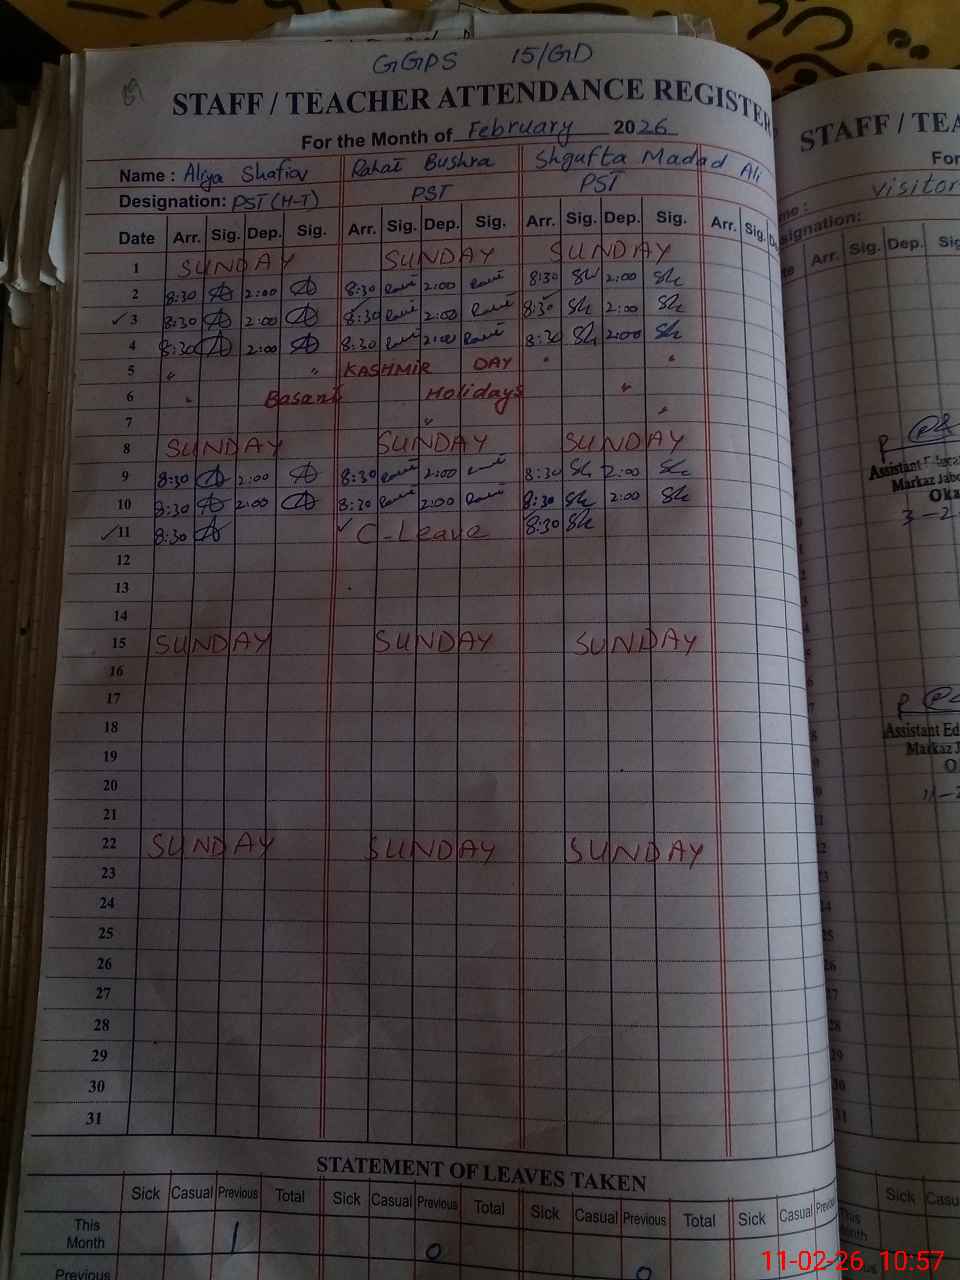 GGPS 15/GD
STAFF / TEACHER ATTENDANCE REGISTER
For the Month of February 2026
Name : Alya Rahat Bushra Shgufta Madad Ali
Designation: PST (H-T) PST PST
Date Arr. Sig. Dep. Sig. Arr. Sig. Dep. Sig. Arr. Sig. Dep. Sig. Arr. Sig.
1 SUNDAY SUNDAY SUNDAY
2 8:30 2:00 8:30 2:00 8:30 2:00
3 8:30 2:00 8:30 2:00 8:30 2:00
4 8:30 2:00 8:30 2:00 8:30 2:00
5 " " KASHMIR DAY " "
6 " Basant Holidays "
7 " "
8 SUNDAY SUNDAY SUNDAY
9 8:30 2:00 8:30 2:00 8:30 2:00
10 8:30 2:00 8:30 2:00 8:30 2:00
11 8:30 C-Leave 8:30
12
13
14
15 SUNDAY SUNDAY SUNDAY
16
17
18
19
20
21
22 SUNDAY SUNDAY SUNDAY
23
24
25
26
27
28
29
30
31
STATEMENT OF LEAVES TAKEN
Sick Casual Previous Total Sick Casual Previous Total Sick Casual Previous Total Sick Casual
This Month 1 0 0
Previous
STAFF / TEA
For
Visitor
Arr. Sig. Dep.
Assistant
Markaz
Oka
Assistant Ed
Markaz J
O
Sick
This
Month
11-02-26 10:57